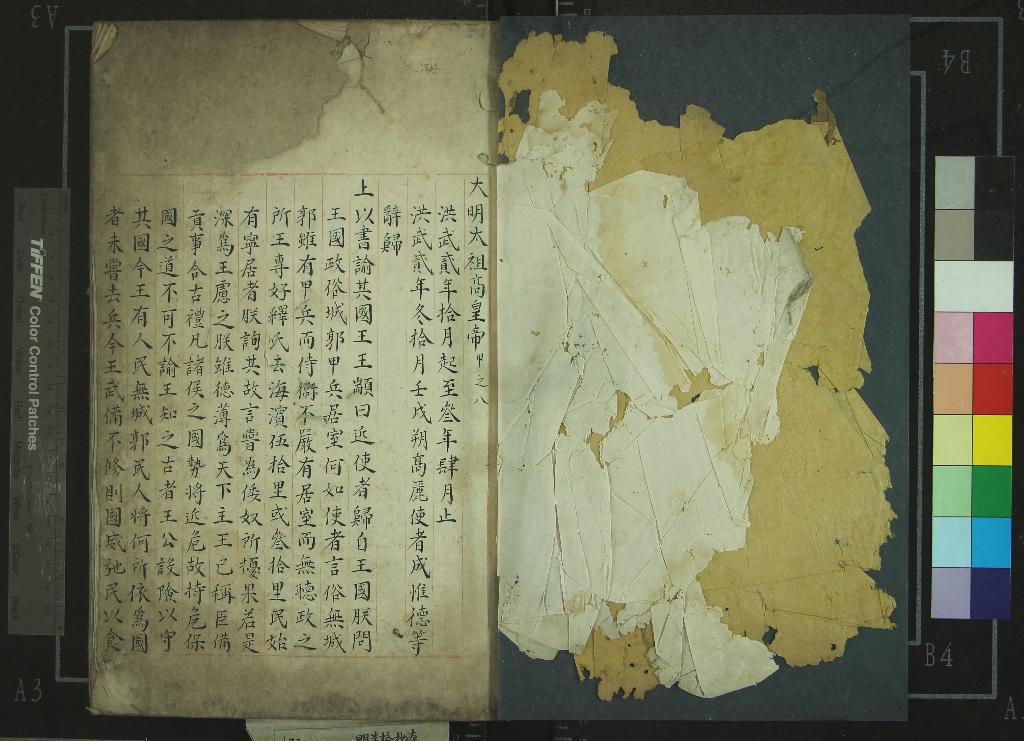 大明太祖高皇帝甲之八
洪武貳年拾月起至叄年肆月止
洪武貳年冬拾月壬戌朔高麗使者成惟德等
辭歸
上以書諭其國王王顓曰近使者歸自王國朕問
王國政俗城郭甲兵居室何如使者言俗無城
郭雖有甲兵而侍衞不嚴有居室而無聽政之
所王專好釋氏去海濱伍拾里或叄拾里民始
有寧居者朕詢其故言嘗為倭奴所擾果若是
深為王慮之朕雖德薄為天下主王已稱臣備
貢事合古禮凡諸侯之國勢將近危故持危保
國之道不可不諭王知之古者王公設險以守
其國今王有人民無城郭民人將何所依為國
者未嘗去兵今王武備不修則國威弛民以食
TIFFEN Color Control Patches
A3
B4
B4
A3